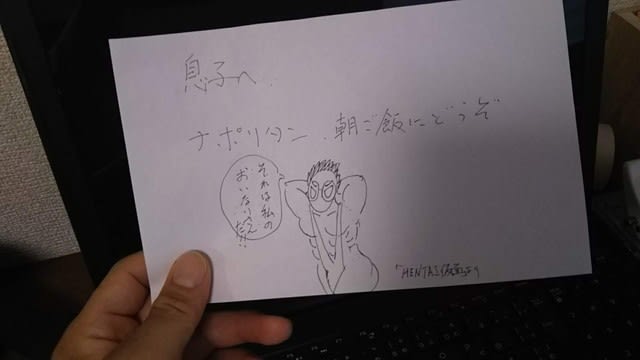 息子へ
ナポリタン、朝ご飯にどうぞ
それは私の
おいなりさん
だ!!
「HENTAI仮面より